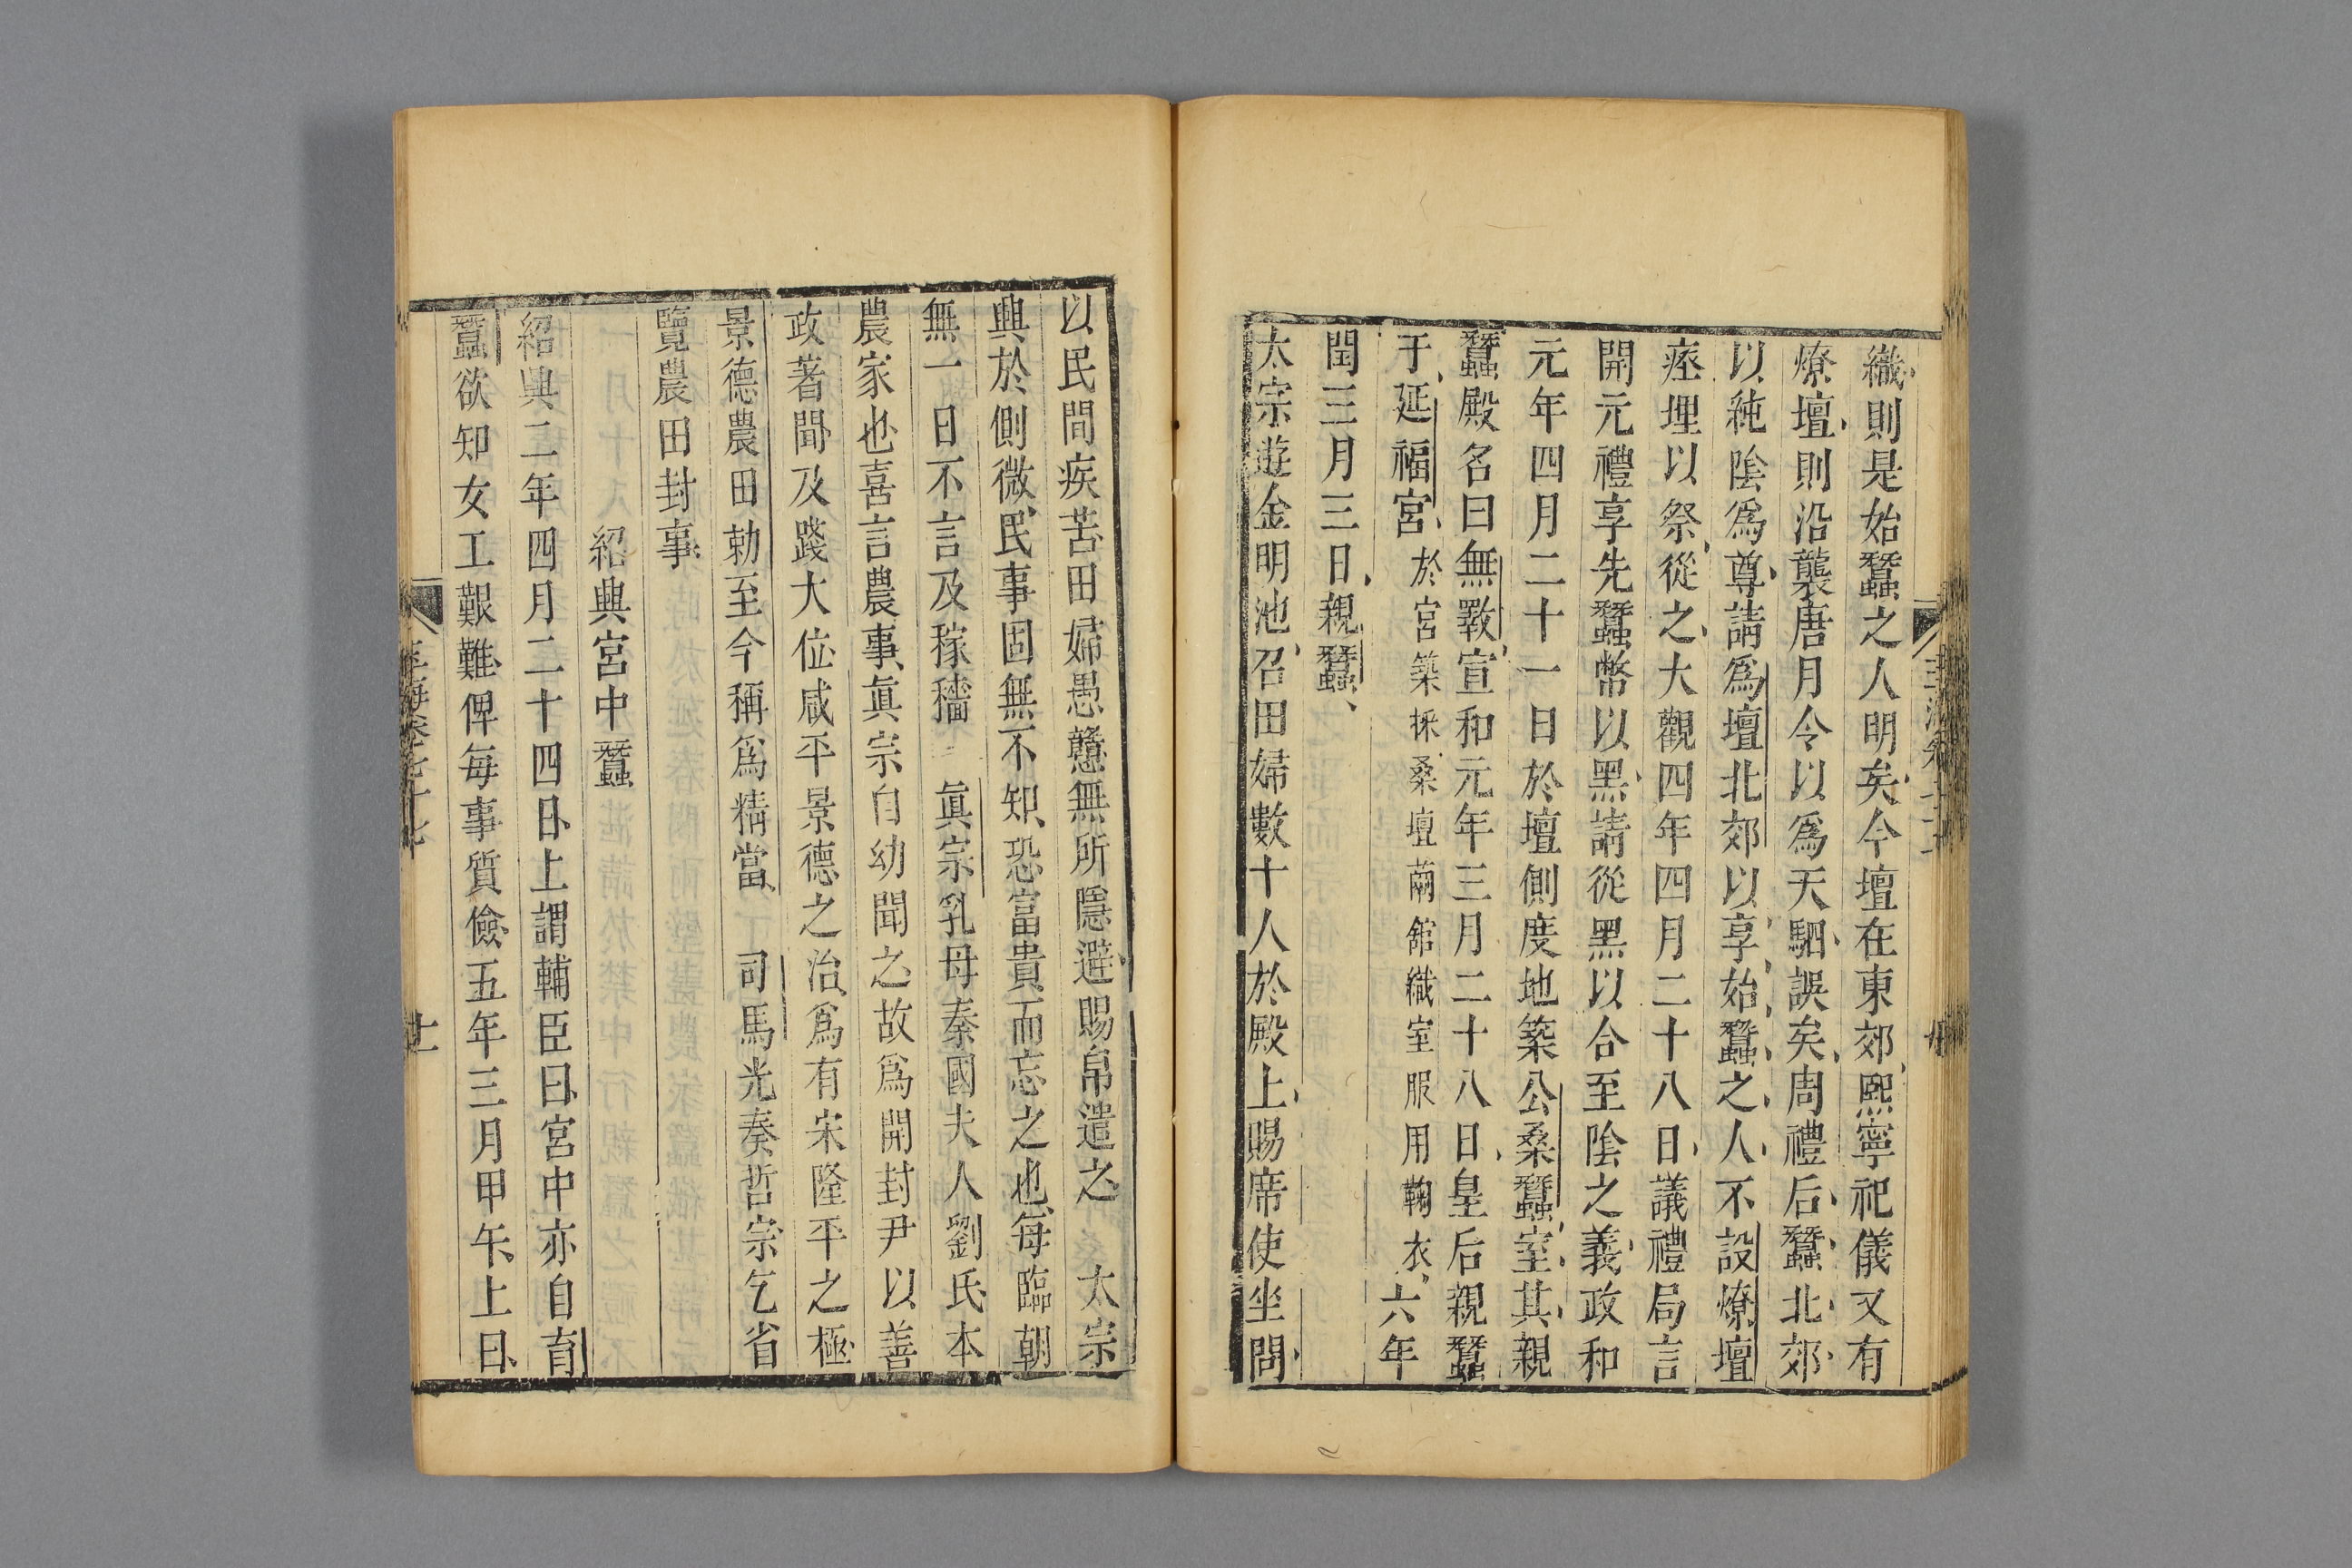 織則是始蠶之人明矣今壇在東郊熙寧祀儀又有
燎壇則沿襲唐月令以爲天駟誤矣周禮后蠶北郊
以純陰爲尊請爲壇北郊以享始蠶之人不設燎壇
瘞埋以祭從之大觀四年四月二十八日議禮局言
開元禮享先蠶幣以黑請從黑以合至陰之義政和
元年四月二十一日於壇側度地築公桑蠶室其親
蠶殿名曰無斁宣和元年三月二十八日皇后親蠶
于延福宮於宮築採桑壇繭舘織室服用鞠衣六年
閏三月三日親蠶
太宗遊金明池召田婦數十人於殿上賜席使坐問
以民間疾苦田婦愚戇無所隱避賜帛遣之 太宗
興於側微民事固無不知恐富貴而忘之也每臨朝
無一日不言及稼穡 眞宗乳母秦國夫人劉氏本
農家也喜言農事眞宗自幼聞之故爲開封尹以善
政著聞及踐大位咸平景德之治爲有宋隆平之極
景德農田勅至今稱爲精當 司馬光奏哲宗乞省
覽農田封事
紹興宮中蠶
紹興二年四月二十四日上謂輔臣曰宮中亦自育
蠶欲知女工艱難俾每事質儉五年三月甲午上曰
玉海卷七十七